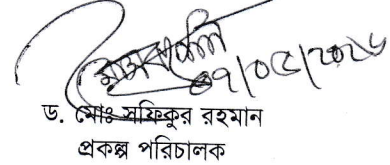 ০৭/০৫/২০২৬
ড. মোঃ সফিকুর রহমান
প্রকল্প পরিচালক